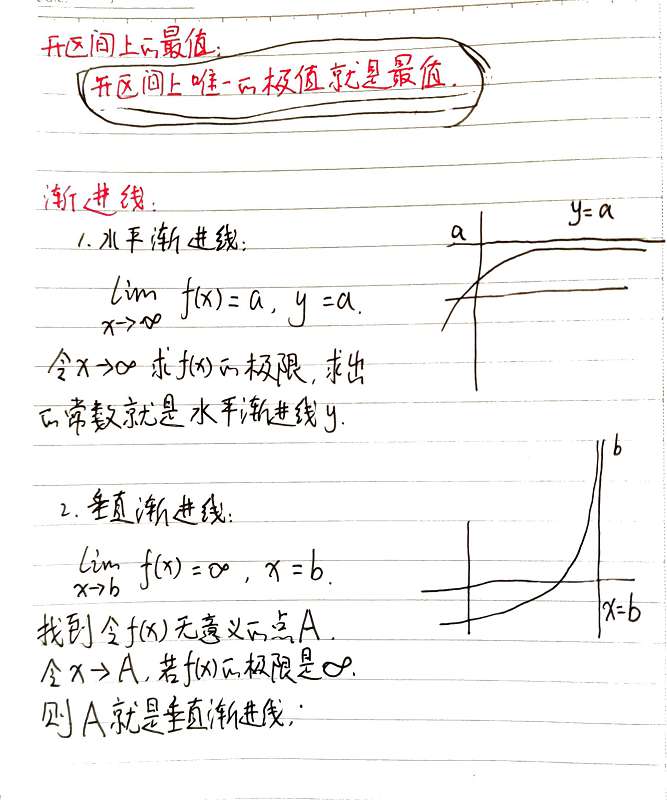 开区间上的最值:
开区间上唯一的极值就是最值.
渐进线:
1. 水平渐进线:
lim f(x)=a, y=a.
x→∞
令x→∞ 求f(x)的极限,求出
的常数就是水平渐进线y.
a
y=a
2. 垂直渐进线:
lim f(x)=∞, x=b.
x→b
找到令f(x)无意义的点A.
令x→A,若f(x)的极限是∞.
则A就是垂直渐进线.
b
x=b